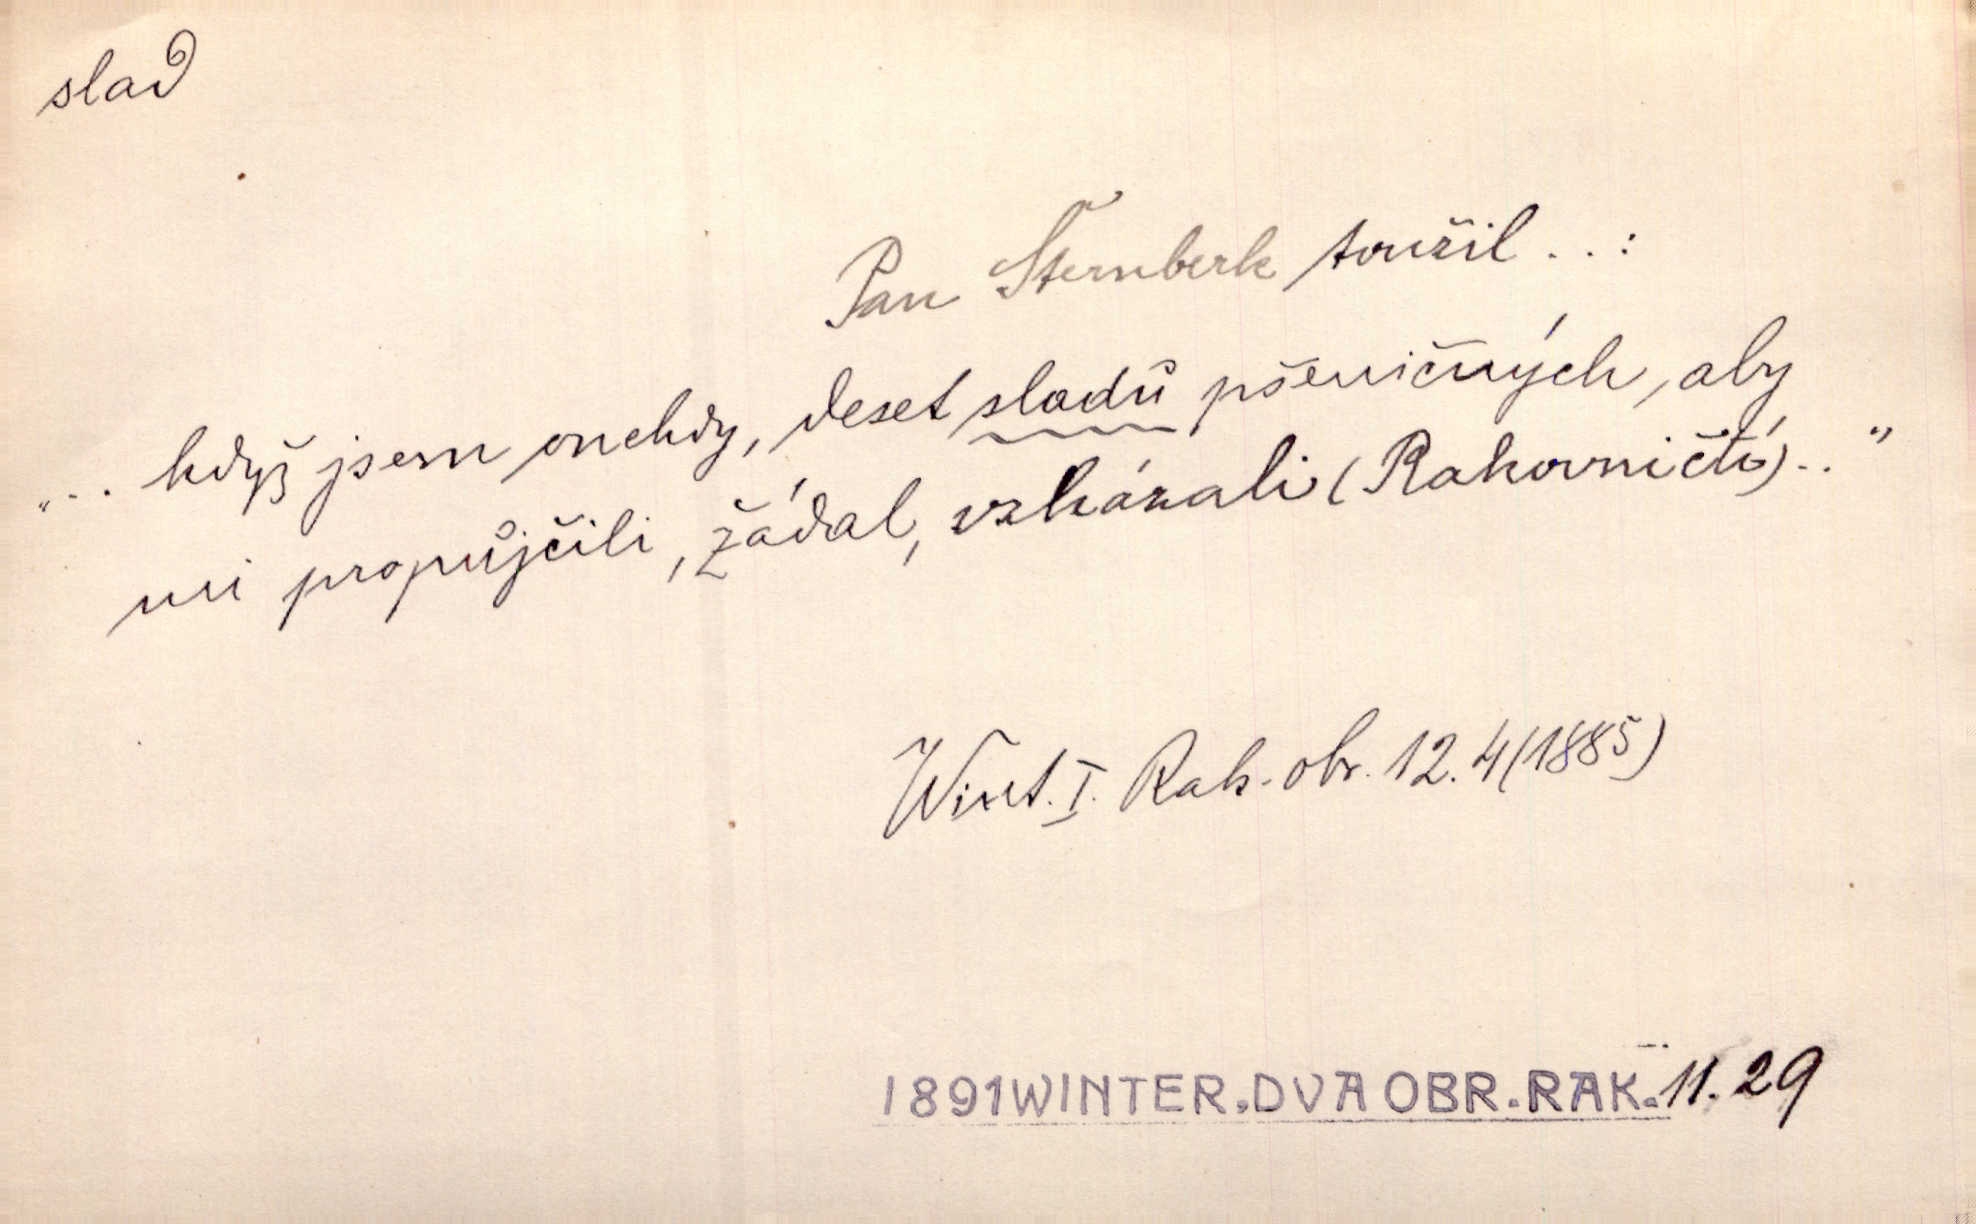 slad
Pan Šternberk toužil . . :
„ . . . když jsem onehdy, deset sladů pšeničných, aby
mi propůjčili, žádal, vzkázali (Rakovničtí) . . "
Wint. I. Rak. obr. 12. 4 (1885)
1891 WINTER. DVA OBR. RAK. 11. 29